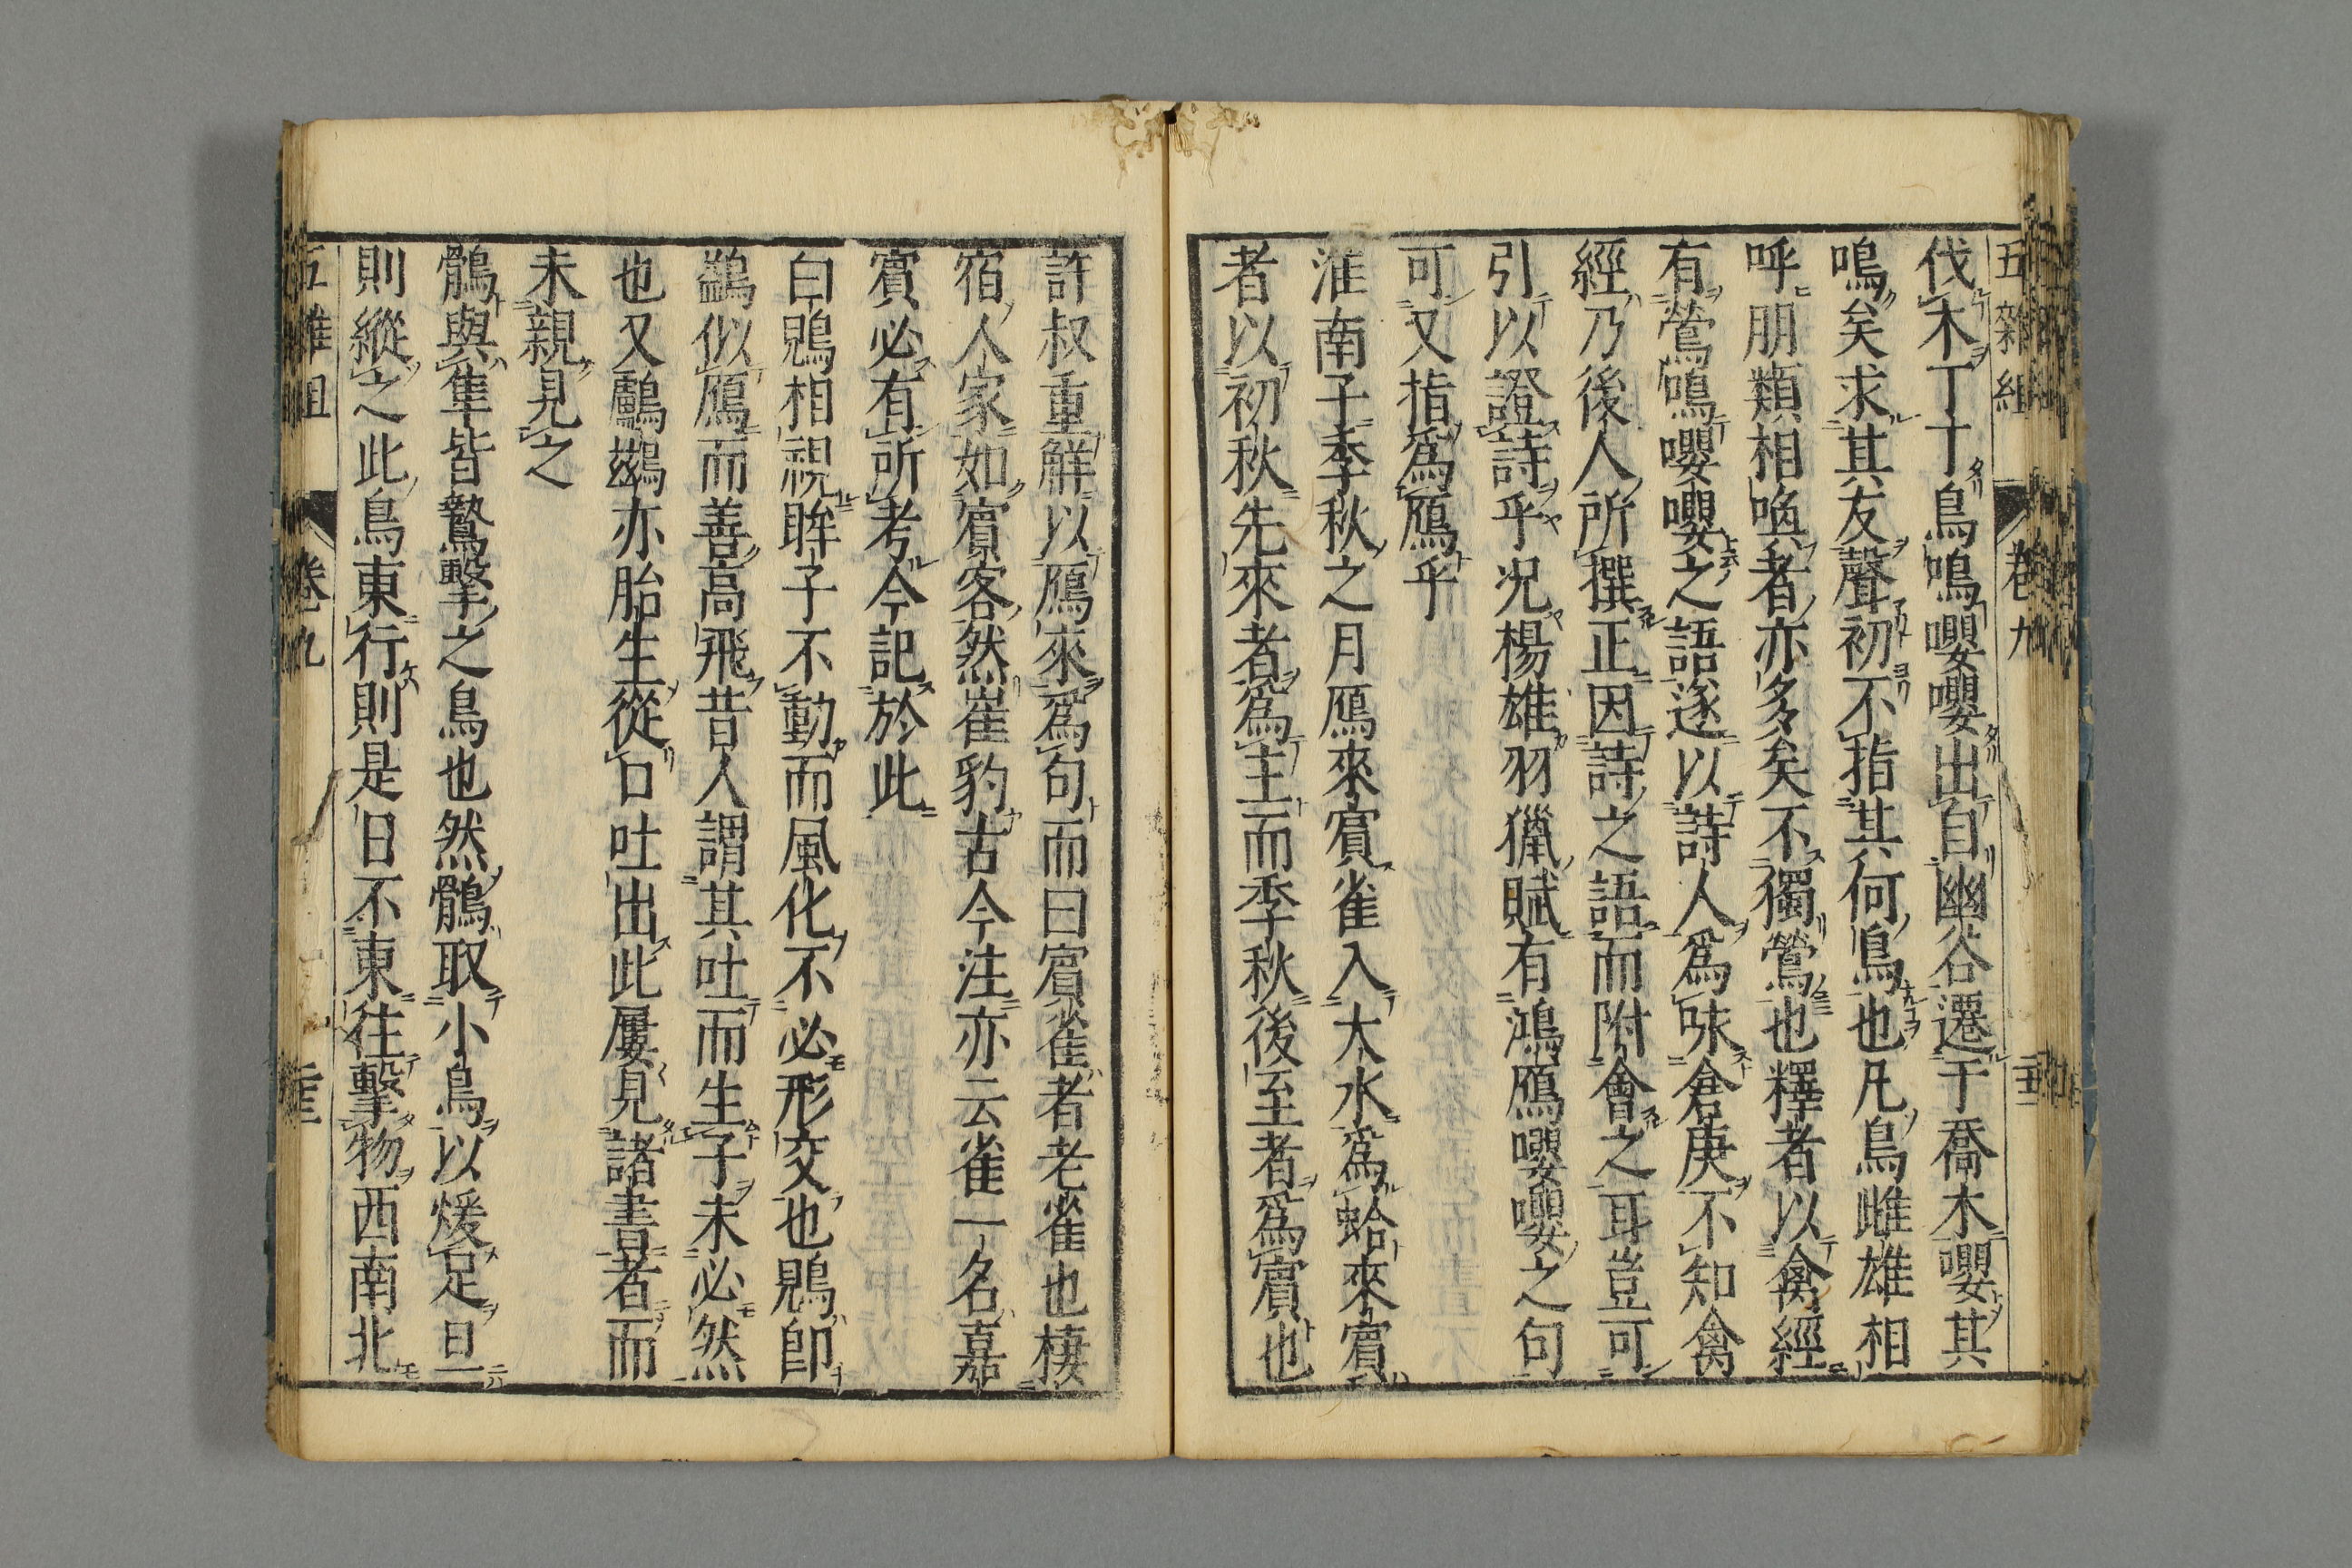 五雜組 卷九
伐木丁丁鳥鳴嚶嚶出自幽谷遷于喬木嚶其
鳴矣求其友聲初不指其何鳥也凡鳥雌雄相
呼朋類相喚者亦多矣不獨鶯也釋者以禽經
有鶯鳴嚶嚶之語遂以詩人爲味倉庚不知禽
經乃後人所撰正因詩之語而附會之耳豈可
引以證詩乎况楊雄羽獵賦有鴻鴈嚶嚶之句
可又指爲鴈乎
淮南子季秋之月鴈來賓雀入大水爲蛤來賓
者以初秋先來者爲主而季秋後至者爲賓也
許叔重解以鴈來爲句而曰賓雀者老雀也棲
宿人家如賓客然崔豹古今注亦云雀一名嘉
賓必有所考今記於此
白鶂相視眸子不動而風化不必形交也鶂卽
鷁似鴈而善高飛昔人謂其吐而生子未必然
也又鸕鷀亦胎生從口吐出此屢見諸書者而
未親見之
鶻與隼皆鷙擊之鳥也然鶻取小鳥以煖足旦
則縱之此鳥東行則是日不東往擊物西南北
五雜組 卷九